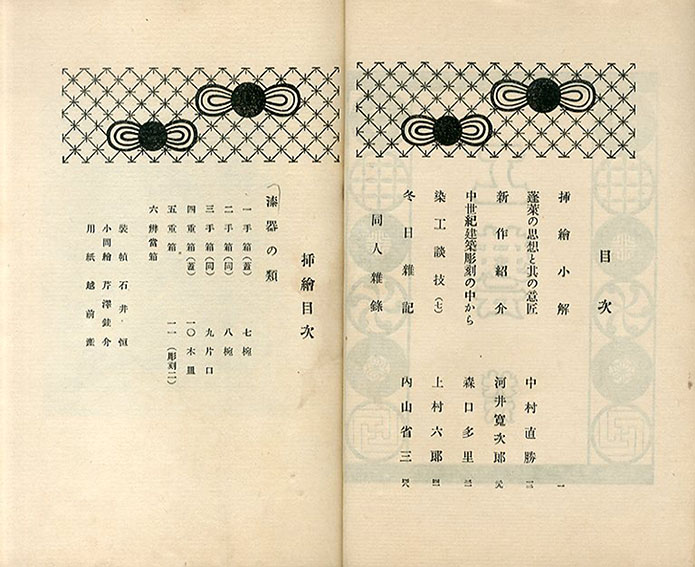 目次
挿繪小解 一
蓬萊の思想と其の意匠 中村直勝
新作紹介 河井寬次郎
中世紀建築彫刻の中から 森口多里
染工談技(七) 上村六郎
冬日雜記 內山省三
同人雜錄
挿繪目次
漆器の類
一手箱(蓋) 七椀
二手箱(同) 八椀
三手箱(同) 九片口
四重箱(蓋) 一〇木皿
五重箱 一一(彫刻二)
六辨當箱
裝幀 石井恒
小間繪 芹澤銈介
用紙 越前產